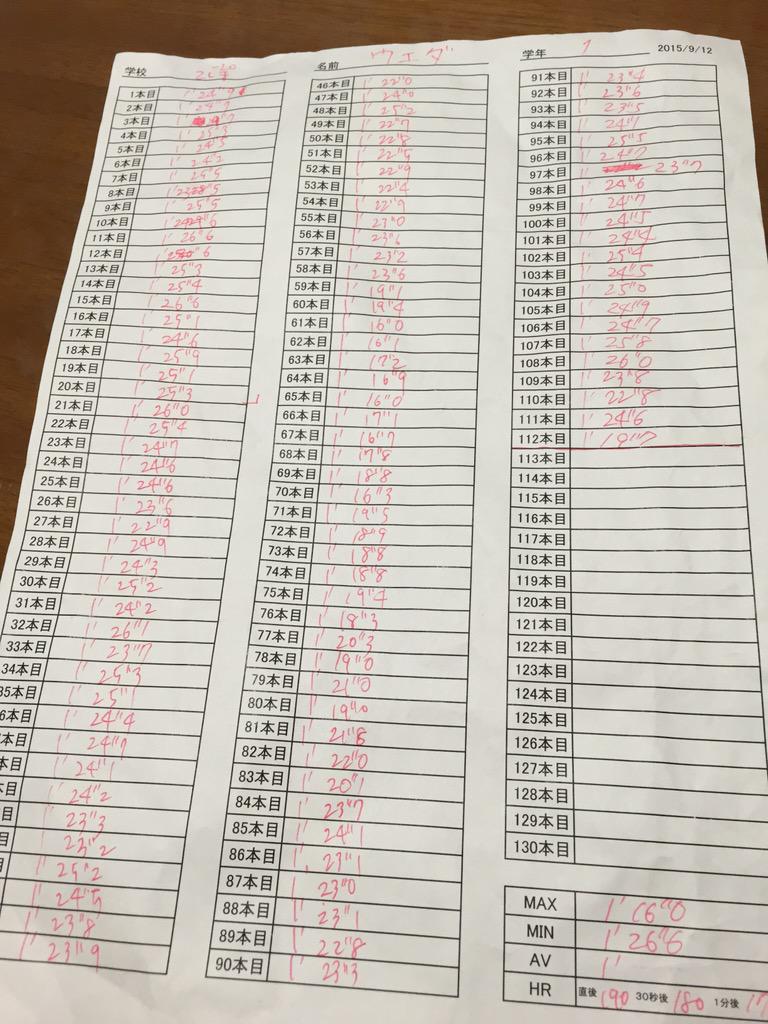 学校
名前 ウエダ
学年 1 2015/9/12
1本目 1' 24"9
2本目 1' 24"7
3本目
4本目 1' 25"3
5本目 1' 24"5
6本目 1' 24"2
7本目 1' 25"5
8本目
9本目 1' 25"5
10本目
11本目 1' 26"6
12本目
13本目 1' 25"3
14本目 1' 25"4
15本目 1' 26"6
16本目 1' 25"1
17本目 1' 24"6
18本目 1' 25"9
19本目 1' 25"1
20本目 1' 25"3
21本目 1' 26"0
22本目 1' 25"4
23本目 1' 24"7
24本目 1' 24"6
25本目 1' 24"6
26本目 1' 23"6
27本目 1' 22"9
28本目 1' 24"9
29本目 1' 24"3
30本目 1' 25"2
31本目 1' 24"2
32本目 1' 26"1
33本目 1' 23"7
34本目 1' 25"3
35本目 1' 25"1
6本目 1' 24"4
本目 1' 24"7
本目 1' 24"1
本目 1' 24"2
目 1' 23"3
目 1' 23"2
目 1' 25"2
1' 24"5
1' 23"8
1' 23"9
46本目 1' 22"0
47本目 1' 24"0
48本目 1' 25"2
49本目 1' 22"7
50本目 1' 22"8
51本目 1' 22"5
52本目 1' 22"9
53本目 1' 22"4
54本目 1' 22"9
55本目 1' 23"0
56本目 1' 23"6
57本目 1' 23"2
58本目 1' 23"6
59本目 1' 19"1
60本目 1' 19"4
61本目 1' 16"0
62本目 1' 16"1
63本目 1' 17"2
64本目 1' 16"9
65本目 1' 16"0
66本目 1' 17"1
67本目 1' 16"7
68本目 1' 17"8
69本目 1' 18"8
70本目 1' 16"3
71本目 1' 19"5
72本目 1' 18"9
73本目 1' 18"8
74本目 1' 18"8
75本目 1' 19"4
76本目 1' 18"3
77本目 1' 20"3
78本目 1' 19"0
79本目 1' 21"0
80本目 1' 19"0
81本目 1' 21"8
82本目 1' 22"0
83本目 1' 20"1
84本目 1' 23"7
85本目 1' 24"1
86本目 1' 23"1
87本目 1' 23"0
88本目 1' 23"1
89本目 1' 22"8
90本目 1' 23"3
91本目 1' 23"4
92本目 1' 23"6
93本目 1' 23"5
94本目 1' 24"1
95本目 1' 25"5
96本目 1' 24"7
97本目 1' 23"7
98本目 1' 24"6
99本目 1' 24"7
100本目 1' 24"5
101本目 1' 24"4
102本目 1' 25"4
103本目 1' 24"5
104本目 1' 25"0
105本目 1' 24"9
106本目 1' 24"7
107本目 1' 25"8
108本目 1' 26"0
109本目 1' 23"8
110本目 1' 22"8
111本目 1' 24"6
112本目 1' 19"7
113本目
114本目
115本目
116本目
117本目
118本目
119本目
120本目
121本目
122本目
123本目
124本目
125本目
126本目
127本目
128本目
129本目
130本目
MAX 1' 16"0
MIN 1' 26"6
AV 1'
HR 直後 190 30秒後 180 1分後 17